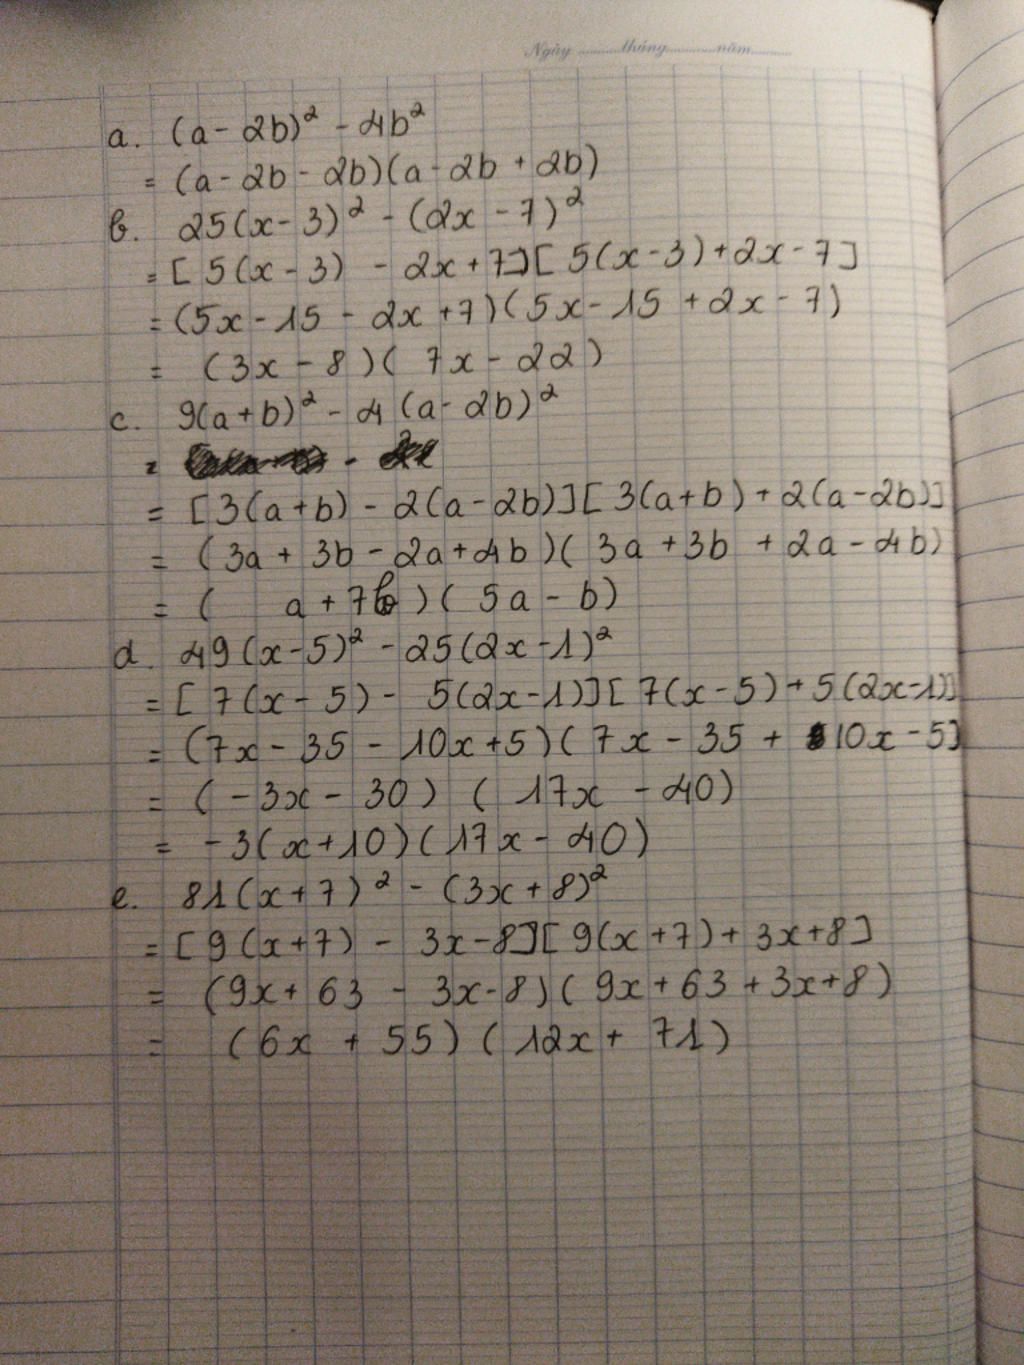 Ngày ........tháng..........năm........
a. (a - 2b)² - 4b²
= (a - 2b - 2b)(a - 2b + 2b)
b. 25(x - 3)² - (2x - 7)²
= [ 5(x - 3) - 2x + 7][ 5(x - 3) + 2x - 7]
= (5x - 15 - 2x + 7)(5x - 15 + 2x - 7)
= (3x - 8)( 7x - 22)
c. 9(a + b)² - 4 (a - 2b)²
= [3(a + b) - 2(a - 2b)][ 3(a + b) + 2(a - 2b)]
= (3a + 3b - 2a + 4b)( 3a + 3b + 2a - 4b)
= ( a + 7b )( 5a - b)
d. 49(x - 5)² - 25(2x - 1)²
= [ 7(x - 5) - 5(2x - 1)][ 7(x - 5) + 5(2x - 1)]
= (7x - 35 - 10x + 5)( 7x - 35 + 10x - 5]
= ( - 3x - 30) ( 17x - 40)
= - 3(x + 10)(17x - 40)
e. 81(x + 7)² - (3x + 8)²
= [ 9(x + 7) - 3x - 8][ 9(x + 7) + 3x + 8]
= (9x + 63 - 3x - 8)( 9x + 63 + 3x + 8)
= (6x + 55) ( 12x + 71)